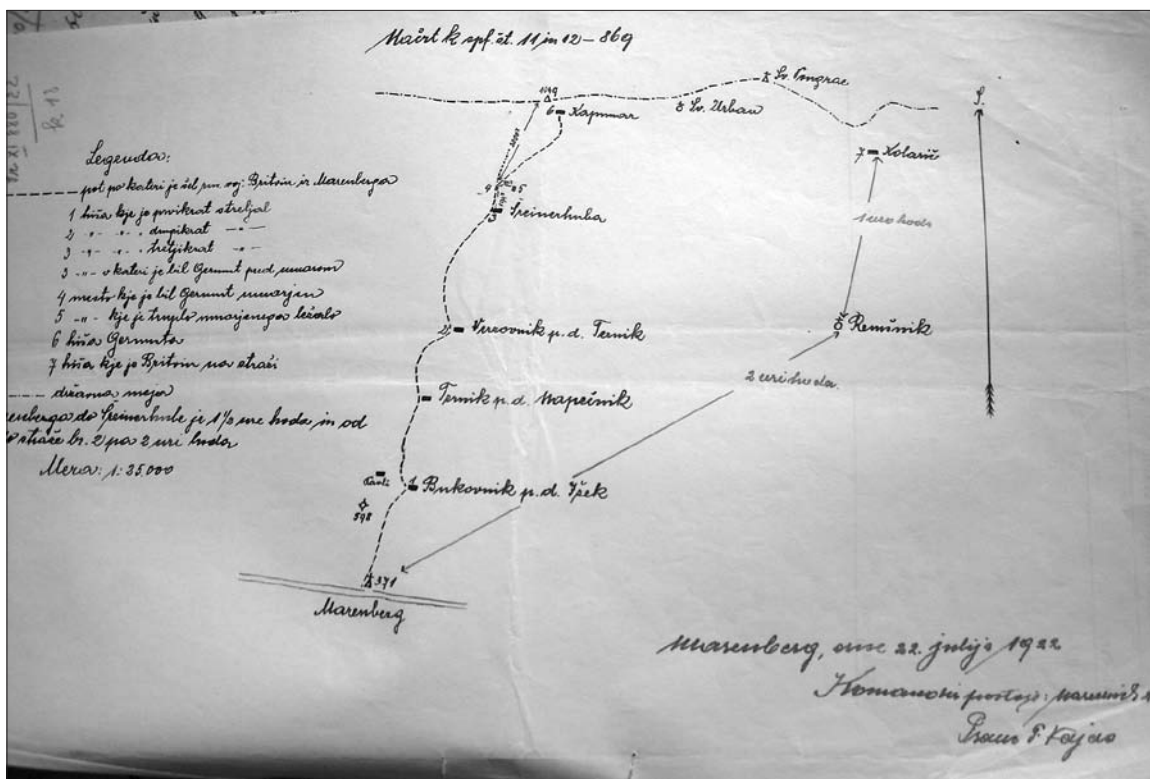 Načrt k spf. čt. 11 in 12 – 869
Legenda:
pot po kateri je šel rm. voj. Britvin iz Marenberga
1 hiša kje je prvikrat streljal
2 -"- -"- -"- drugikrat -"-
3 -"- -"- -"- tretjikrat -"-
3 -"- v kateri je bil Germut pred umorom
4 mesto kje je bil Germut umorjen
5 -"- kje je truplo umorjenega ležalo
6 hiša Germuta
7 hiša kje je Britvin na straži
državna meja
enberga do Šreinerhube je 1½ ure hoda in od
straže br. 2 pa 2 uri hoda
Mera: 1:25.000
Sv. Pongrac
Sv. Urban
S.
6 Kapunar
7 Kolarič
4
5
3 Šreinerhuba
1 uro hoda
2 Verovnik p.d. Ternik
Remšnik
2 uri hoda
Ternik p.d. Napečnik
1 Bukovnik p.d. Jšek
598
371
Marenberg
Marenberg, dne 22. julija 1922
Komandir postaje: